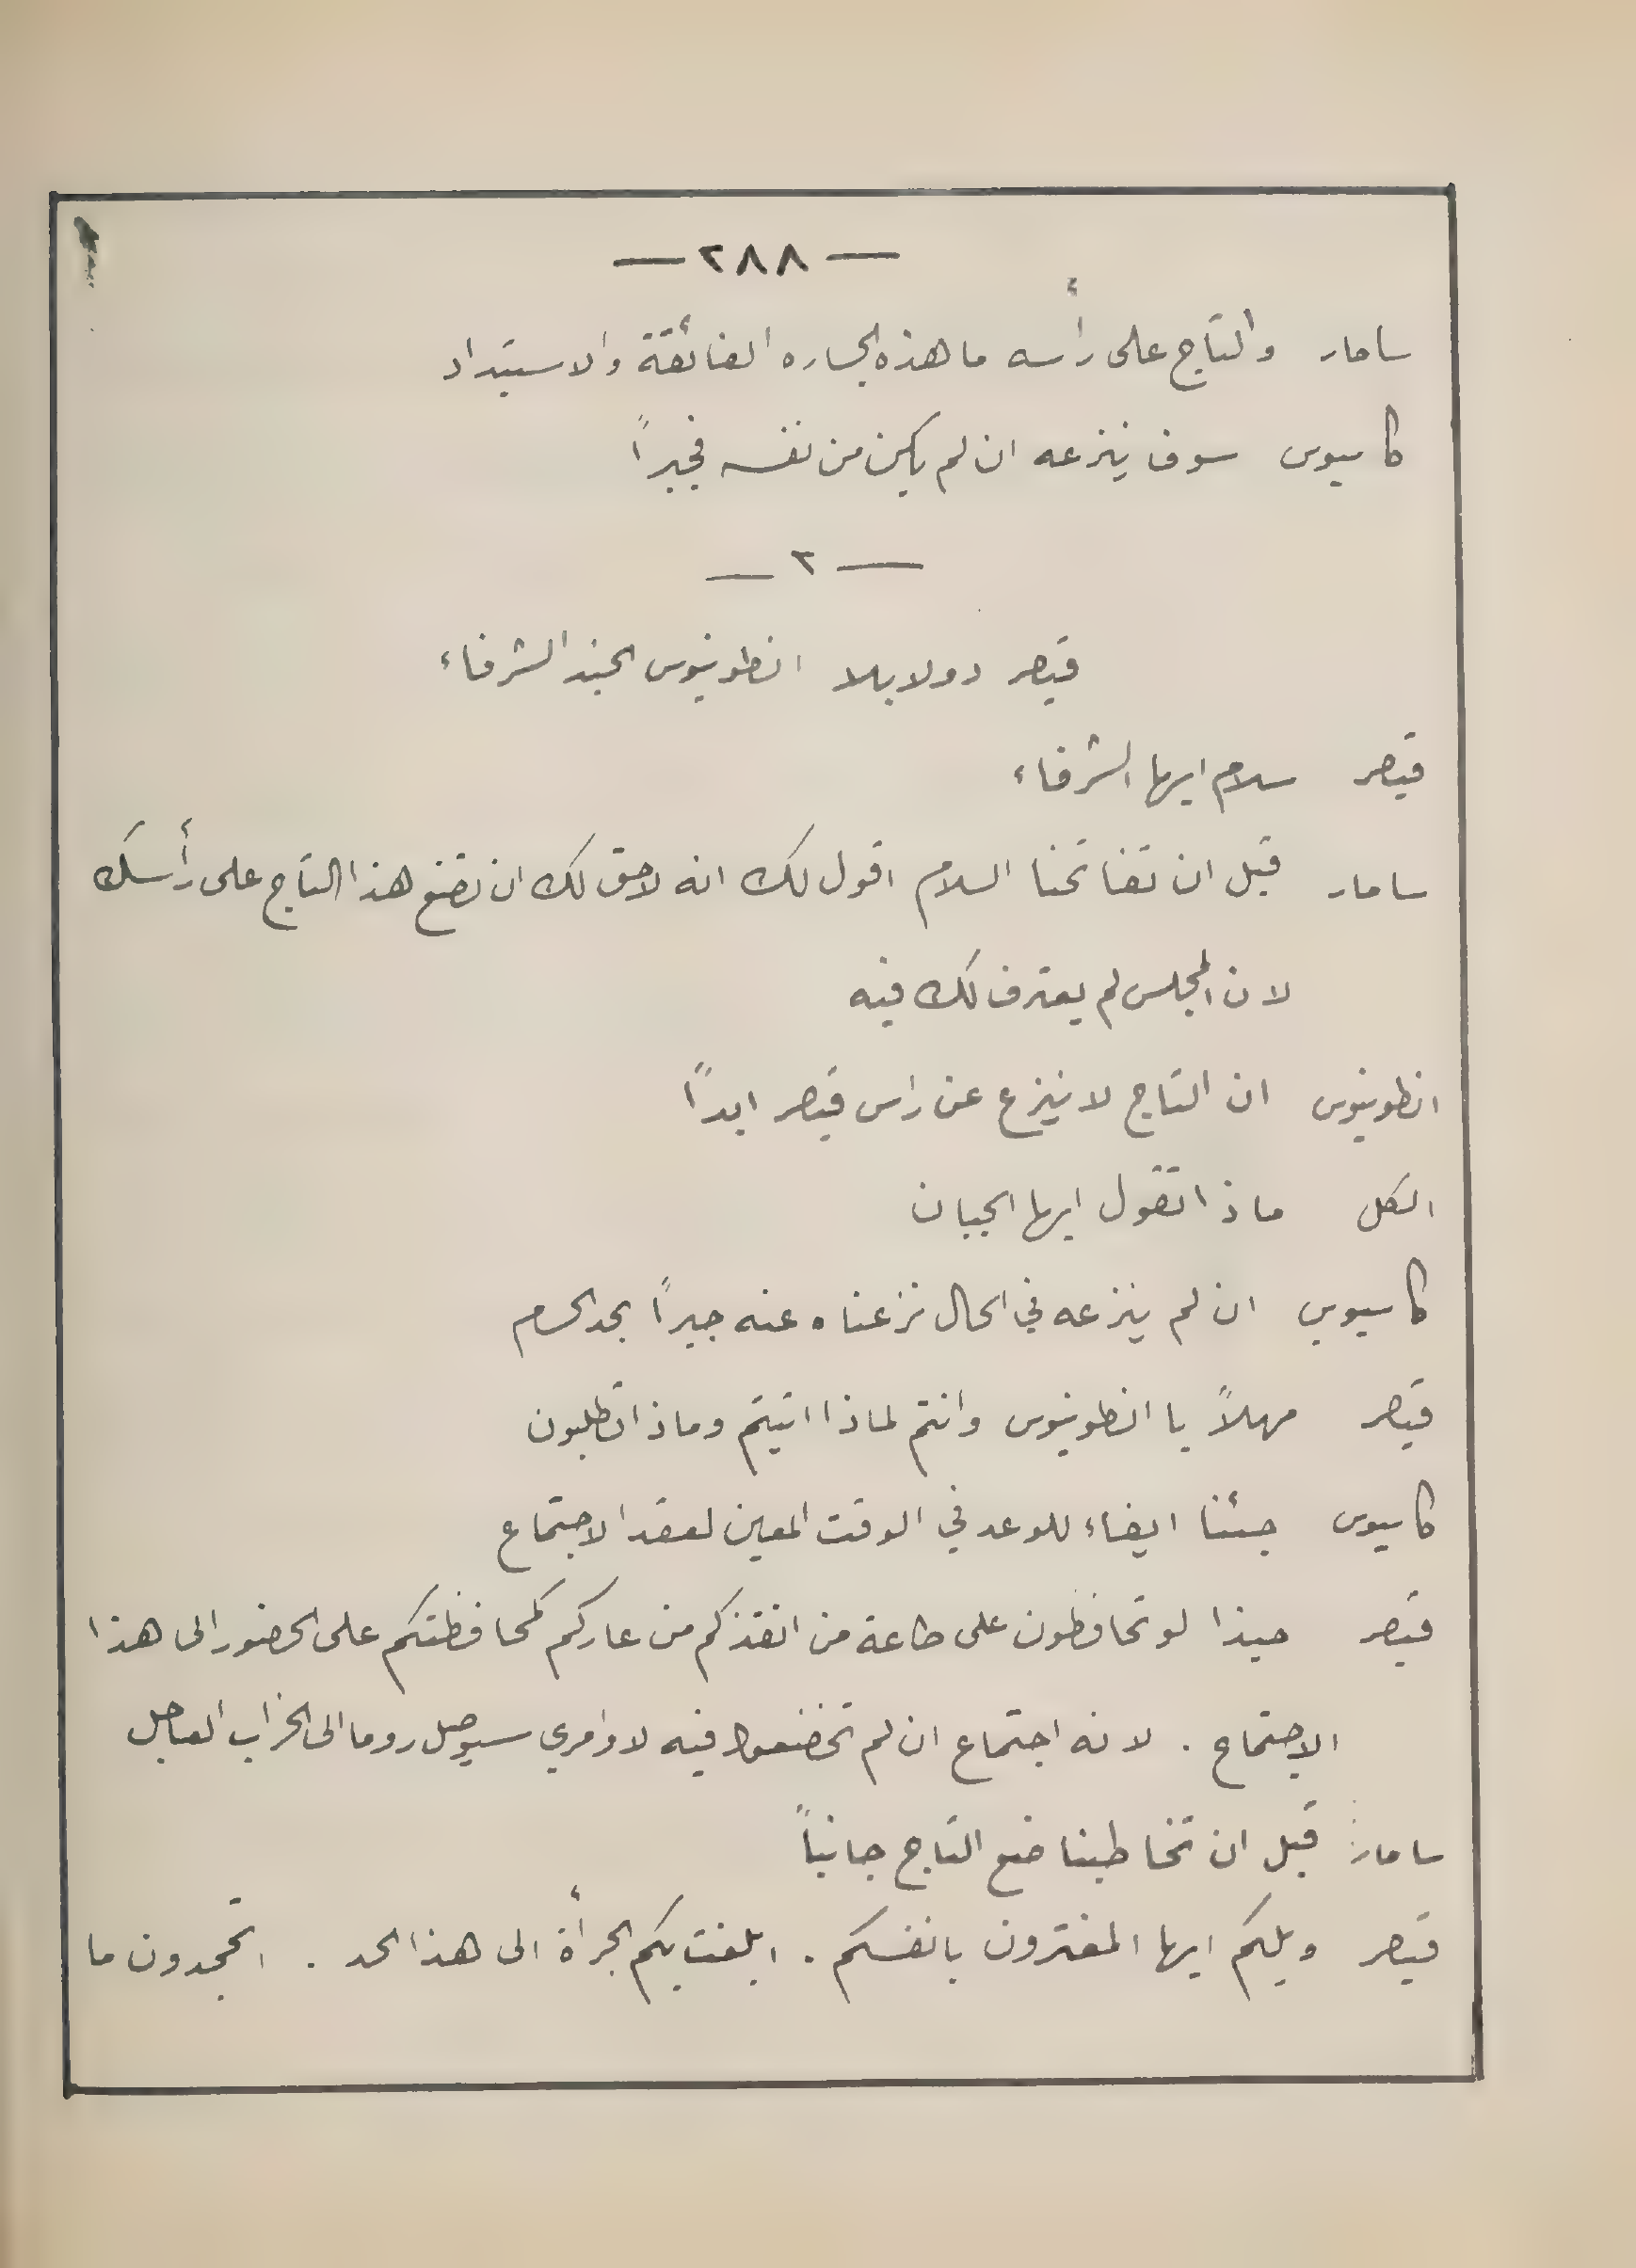 — ٢٨٨ —
سامار والتاج على رأسه ما هذه الجساره الفائقة والاستبداد
كاسيوس سوف ينزعه ان لم يكن من نفسه فجبراً
— ٢ —
قيصر دولابلا انطونيوس الجند الشرفاء
قيصر سلام ايها الشرفاء
سامار قبل ان تفاتحنا السلام اقول لك انه لاحق لك ان تضع هذا التاج على رأسك
لان المجلس لم يعترف لك فيه
انطونيوس ان التاج لا ينزع عن راس قيصر ابداً
الكل ماذا تقول ايها الجبان
كاسيوس ان لم ينزعه في الحال نزعناه عنه جبراً بحد الحسام
قيصر مهلاً يا انطونيوس وانتم لماذا اتيتم وماذا تطلبون
كاسيوس جئنا ايفاء للوعد في الوقت المعين لعقد الاجتماع
قيصر حبذا لو تحافظون على طاعة من انقذكم من عاركم كمحافظتكم على الحضور الى هذا
الاجتماع . لانه اجتماع ان لم تخضعوا فيه لاوامري سيوصل روما الى الخراب العاجل
سامار قبل ان تخاطبنا ضع التاج جانباً
قيصر ويلكم ايها المغترون بانفسكم . ابلغت بكم الجرأة الى هذا الحد . اتجحدون ما